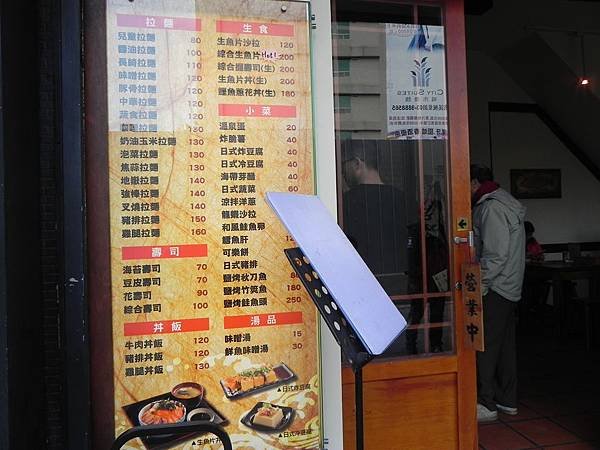 拉麵
兒童拉麵 80
醬油拉麵 100
長崎拉麵 110
味噌拉麵 120
豚骨拉麵 120
中華拉麵 120
蔬食拉麵 120
拉麵 130
奶油玉米拉麵 130
泡菜拉麵 130
焦蒜拉麵 130
地獄拉麵 130
強棒拉麵 130
叉燒拉麵 150
豬排拉麵 150
雞腿拉麵 160
壽司
海苔壽司 70
豆皮壽司 70
花壽司 90
綜合壽司 100
丼飯
牛肉丼飯 120
豬排丼飯 120
雞腿丼飯 130
生食
生魚片沙拉 120
綜合生魚片 Hot! 200
綜合握壽司(生) 200
生魚片丼(生) 200
鮭魚蔥花丼(生) 180
小菜
溫泉蛋 20
炸脆薯 40
日式炸豆腐 40
日式冷豆腐 40
海帶芽醋 40
日式蔬菜 60
涼拌洋蔥
龍蝦沙拉
和風鮭魚卵
鱈魚肝 120
可樂餅
日式豬排
鹽烤秋刀魚 80
鹽烤竹筴魚 180
鹽烤鮭魚頭 250
湯品
味噌湯 15
鮮魚味噌湯 30
▲日式炸豆腐
▲日式冷豆腐
▲生魚片
CITY SUITES
城市商旅
營業中